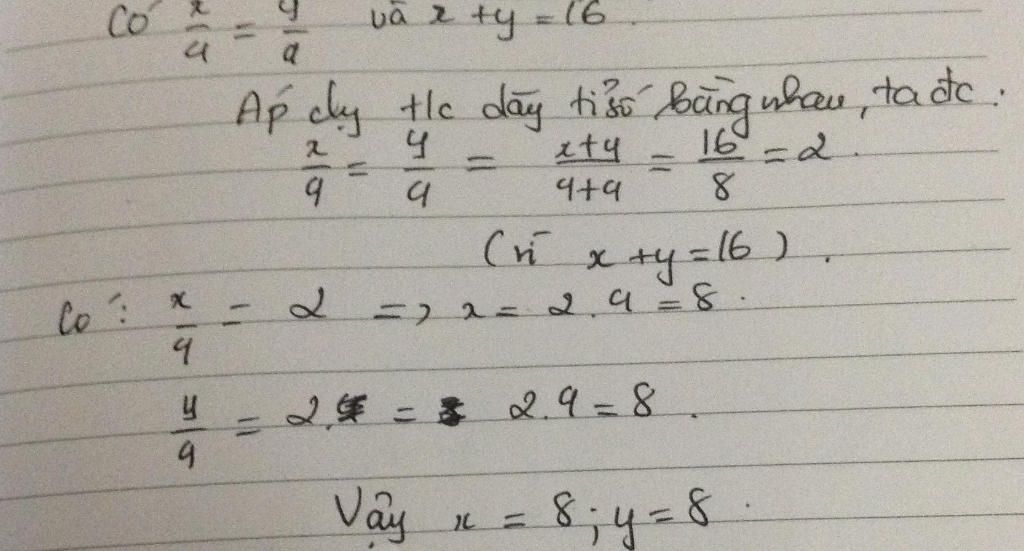 Có x/4 = y/4 và x + y = 16.
Áp dụ t/c dãy tỉ số bằng nhau, ta đc:
x/4 = y/4 = x+y/4+4 = 16/8 = 2.
(vì x + y = 16).
Có: x/4 = 2 => x = 2.4 = 8.
y/4 = 2. = 2.4 = 8.
Vậy x = 8; y = 8.